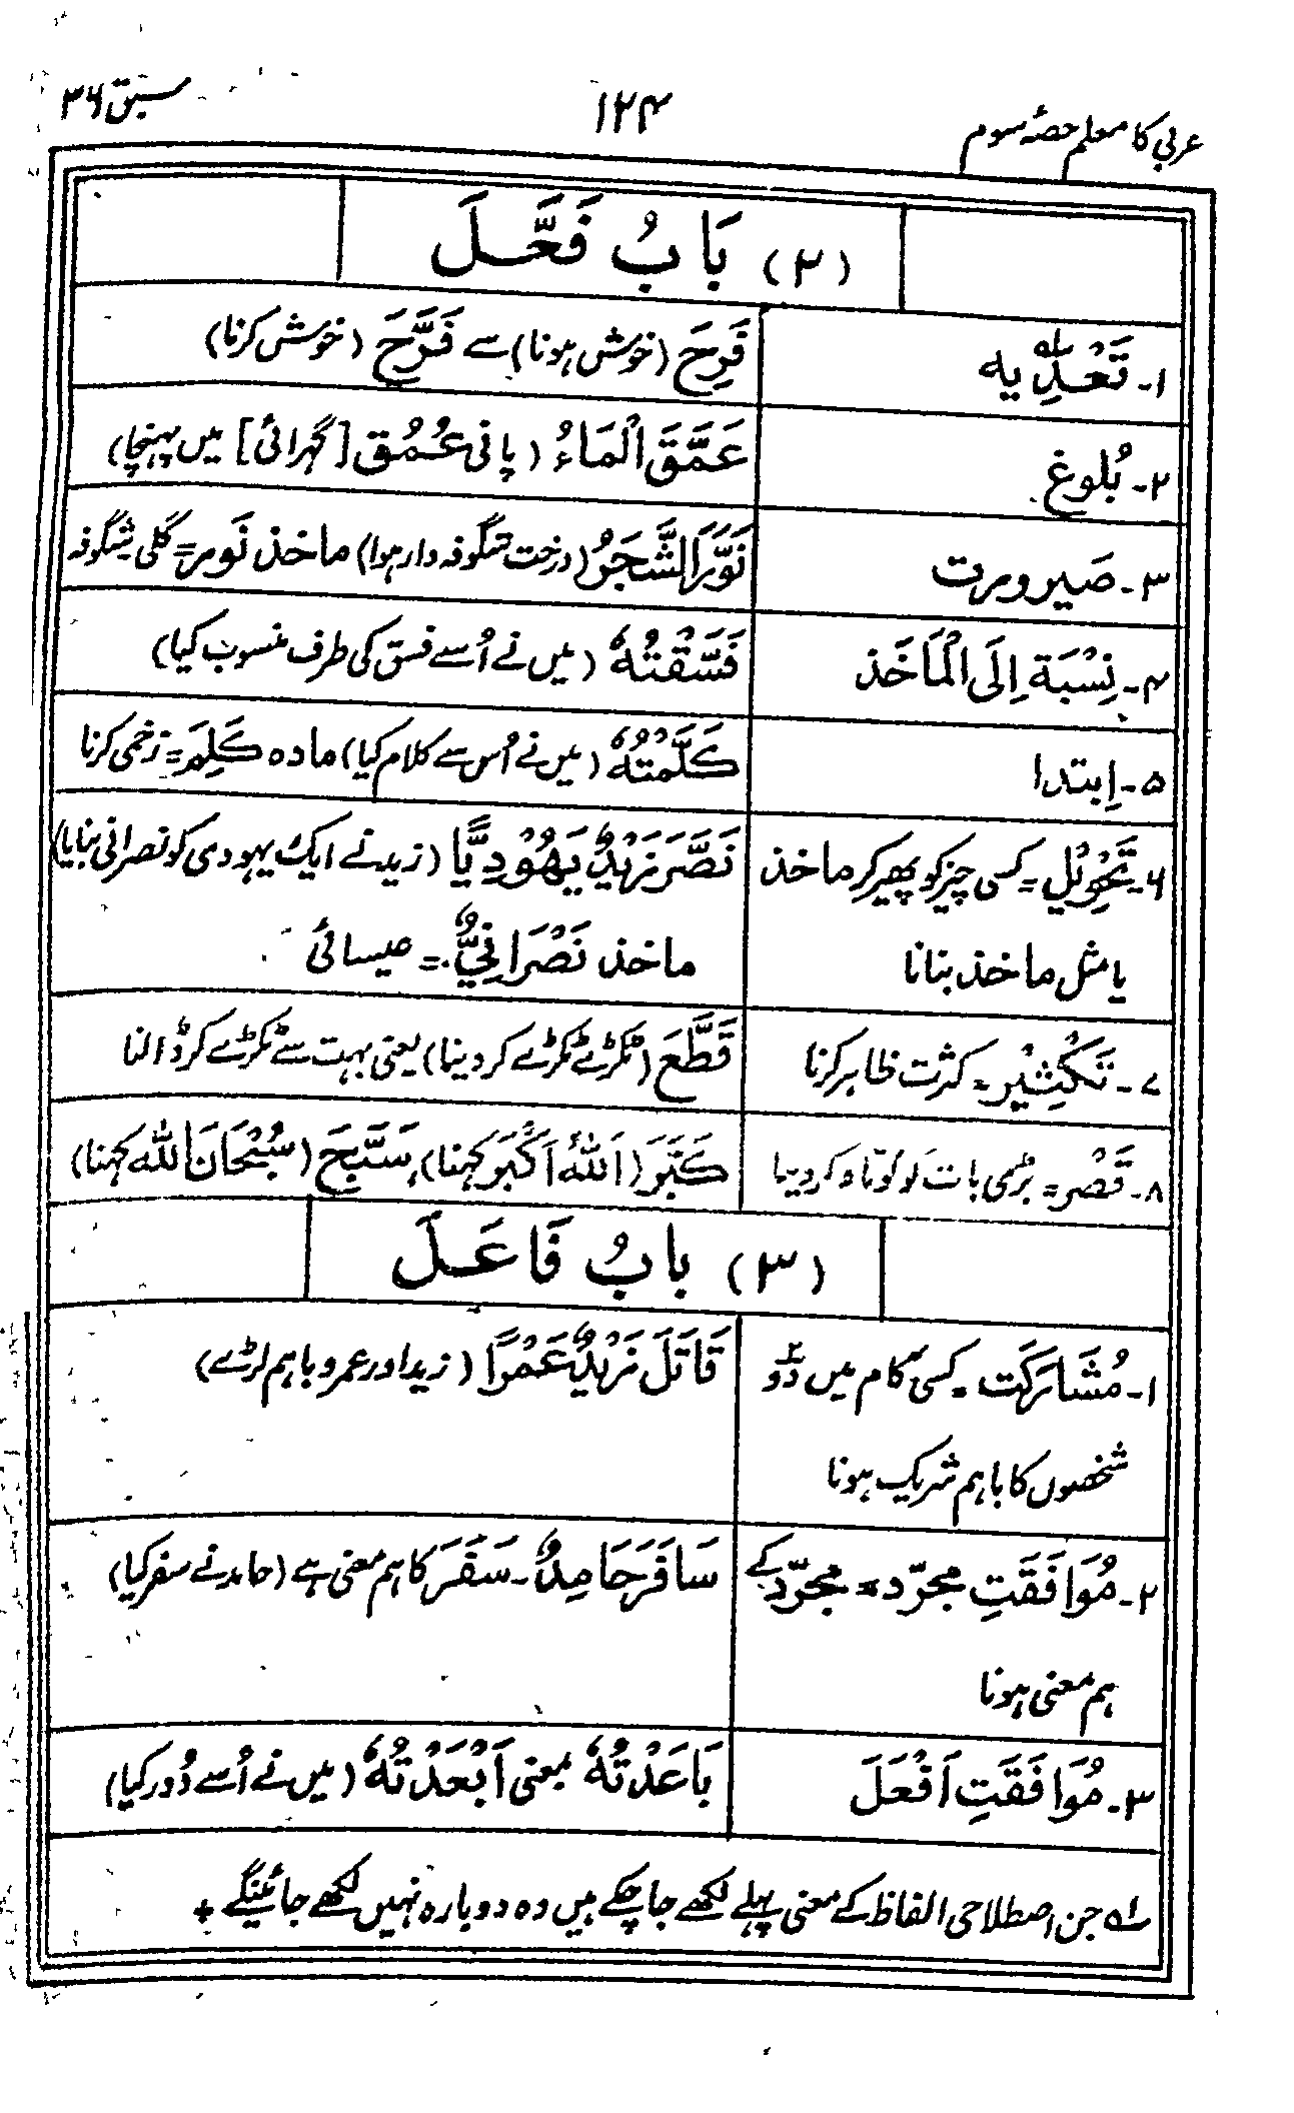 عربی کا معلم حصۂ سوم
۱۲۴
سبق ۳۶
(۲) بَابُ فَعَّلَ
۱- تَعْدِیه ؎۱
فَرِحَ (خوش ہونا) سے فَرَّحَ (خوش کرنا)
۲- بُلوغ
عَمَّقَ الْمَاءُ (پانی عُمُق [گہرائی] میں پہنچا)
۳- صَیرورت
نَوَّرَ الشَّجَرُ (درخت شگوفہ دار ہوا) ماخذ نَور = کلی شگوفہ
۴- نِسْبَة اِلَی الْمَاخَذ
فَسَّقْتُهٗ (میں نے اُسے فسق کی طرف منسوب کیا)
۵- اِبتدا
کَلَّمْتُهٗ (میں نے اُس سے کلام کیا) مادہ کَلِمَ = زخمی کرنا
۶- تَحْوِیْل = کسی چیز کو پھیر کر ماخذ
یا مثل ماخذ بنانا
نَصَّرَ زَیْدٌ یَهُوْدِیًّا (زید نے ایک یہودی کو نصرانی بنایا)
ماخذ نَصْرَانِیٌّ = عیسائی
۷- تَکْثِیْر = کثرت ظاہر کرنا
قَطَّعَ (ٹکڑے ٹکڑے کر دینا) یعنی بہت سے ٹکڑے کر ڈالنا
۸- قَصْر = بڑی بات کو کوتاہ کر دینا
کَبَّرَ (اَللّٰهُ اَکْبَر کہنا)، سَبَّحَ (سُبْحَانَ اللّٰه کہنا)
(۳) بابُ فَاعَلَ
۱- مُشَارَکَت = کسی کام میں دو
شخصوں کا باہم شریک ہونا
قَاتَلَ زَیْدٌ عَمْرًا (زید اور عمرو باہم لڑے)
۲- مُوَافَقَتِ مجرّد = مجرّد کے
ہم معنی ہونا
سَافَرَ حَامِدٌ - سَفَرَ کا ہم معنی ہے (حامد نے سفر کیا)
۳- مُوَافَقَتِ اَفْعَلَ
بَاعَدْتُهٗ بمعنی اَبْعَدْتُهٗ (میں نے اُسے دُور کیا)
؎۱ جن اصطلاحی الفاظ کے معنی پہلے لکھے جا چکے ہیں وہ دوبارہ نہیں لکھے جائینگے +